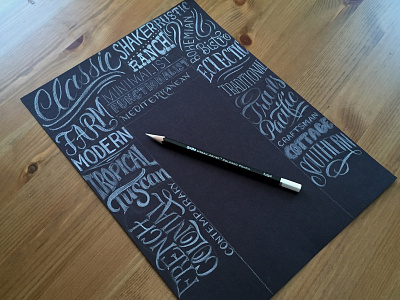 Classic
SHAKER
RUSTIC
RANCH
MINIMALIST
FUNCTIONALIST
MEDITERRANEAN
BOHEMIAN
Bistro
ECLECTIC
TRADITIONAL
FARM
MODERN
TROPICAL
Tuscan
FRENCH
COLONIAL
CONTEMPORARY
CRAFTSMAN
COTTAGE
SOUTHERN